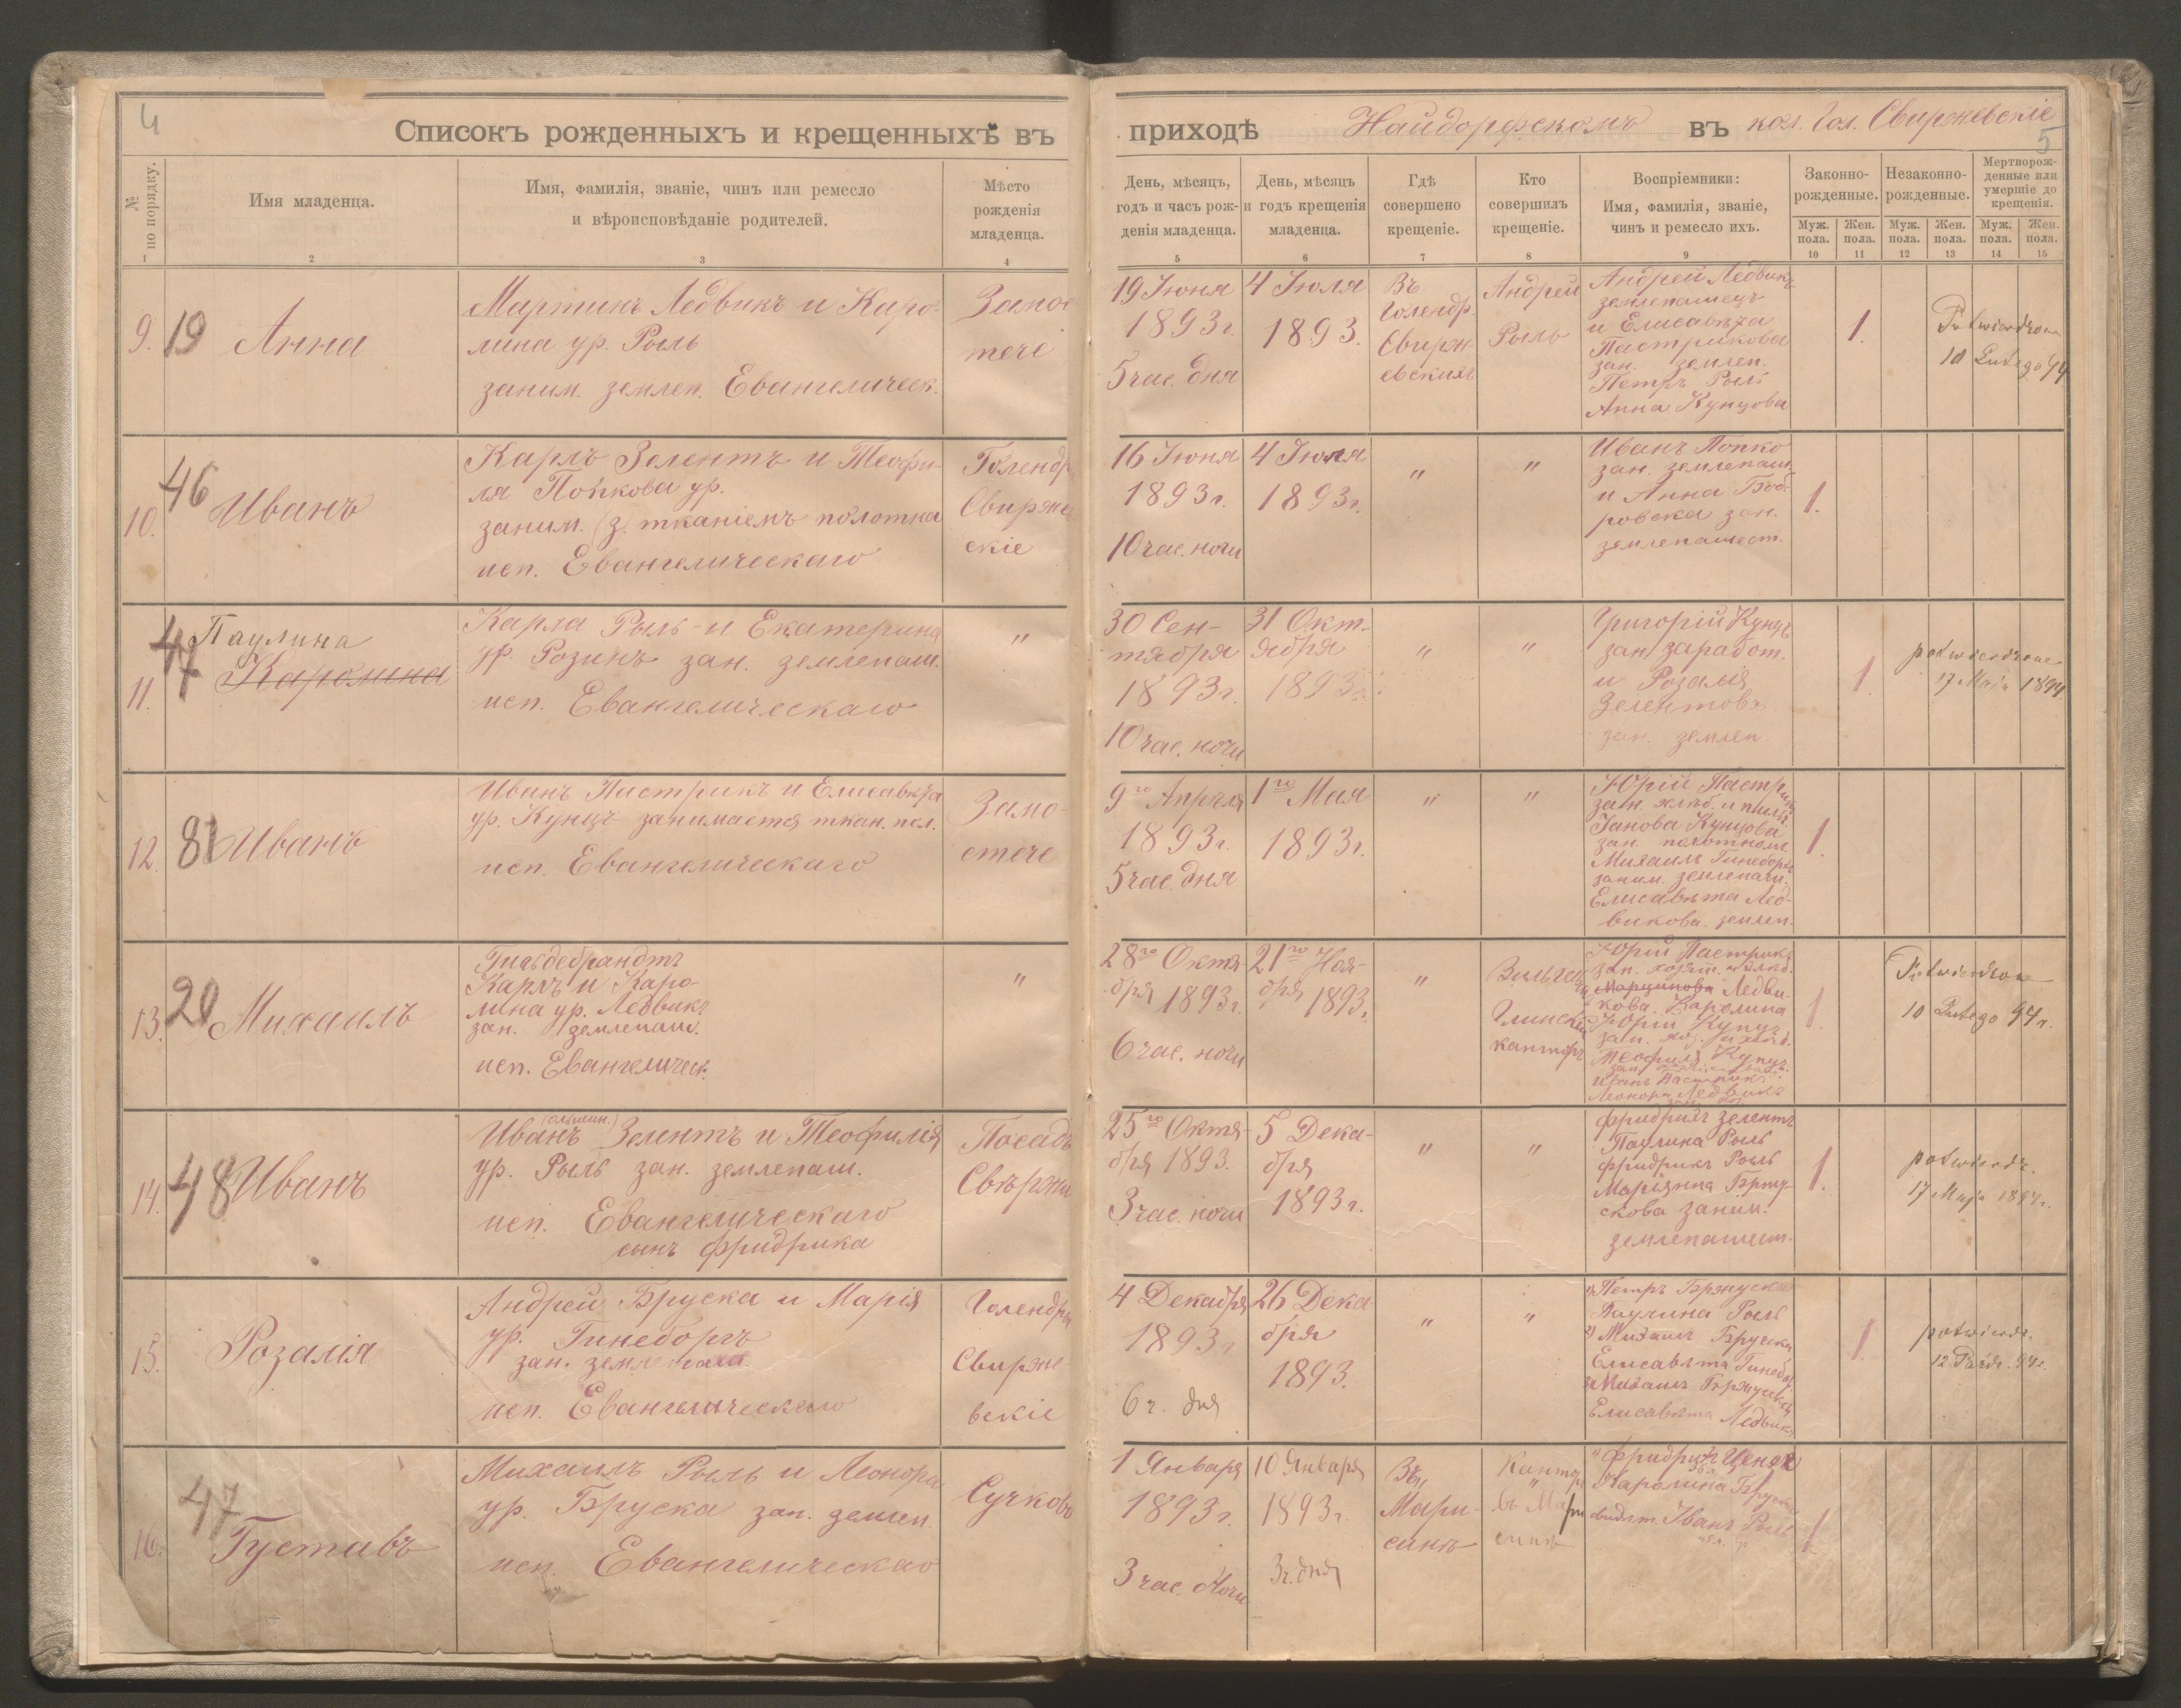 4
Списокъ рожденныхъ и крещенныхъ въ
приходѣ Найдорфскомъ въ кол. Гол. Свиржевскіе
5
№ по порядку.
Имя младенца.
Имя, фамилія, званіе, чинъ или ремесло
и вѣроисповѣданіе родителей.
Мѣсто
рожденія
младенца.
День, мѣсяцъ,
годъ и часъ рож-
денія младенца.
День, мѣсяцъ
и годъ крещенія
младенца.
Гдѣ
совершено
крещеніе.
Кто
совершилъ
крещеніе.
Воспріемники:
Имя, фамилія, званіе,
чинъ и ремесло ихъ.
Законно-
рожденные.
Незаконно-
рожденные.
Мертворож-
денные или
умершіе до
крещенія.
Муж.
пола.
Жен.
пола.
Муж.
пола.
Жен.
пола.
Муж.
пола.
Жен.
пола.
1 2 3 4 5 6 7 8 9 10 11 12 13 14 15
9. 19 Анна
Мартинъ Ледвикъ и Каро-
лина ур. Рыль
заним. землеп. Евангелическ.
Замос
тече
19 Іюня
1893 г.
5 час. дня
4 Іюля
1893.
Въ
Голендр
Свирж
евскихъ
Андрей
Рыль
Андрей Ледвикъ
землепашецъ
и Елисавѣта
Пастрикова
зан. землеп.
Петръ Рыль
Анна Кунцова
1.
Potwierdzone
10 Lutego 94
10. 46 Иванъ
Карлъ Зелентъ и Теофи-
ля Попкова ур.
заним. (з. тканіемъ полотна
исп. Евангелическаго
Голендр
Свирже
скіе
16 Іюня
1893 г.
10 час. ночи
4 Іюля
1893 г.
"
"
Иванъ Попко
зан. землепаш.
и Анна Боб-
ровска зан.
землепашест.
1.
11. 47 Паулина
Каролина
Карла Рыль и Екатерина
ур. Розинъ зан. землепаш.
исп. Евангелическаго
"
30 Сен-
тября
1893 г.
10 час. ночи
31 Окт-
ября
1893 г.
"
"
Григорій Кунцъ
зан. заработ.
и Розалія
Зелентова
зан. землеп.
1
potwierdzone
17 Maja 1894
12. 81 Иванъ
Иванъ Пастрикъ и Елисавѣта
ур. Кунцъ занимается ткан. пол.
исп. Евангелическаго
Замо-
стече
9го Апрѣля
1893 г.
5 час. дня
1го Мая
1893 г.
"
"
Юрій Пастрикъ
Кунцова
Михаилъ Гинеборгъ
заним. землепаш.
Елисавѣта Лед-
викова землеп.
1.
13. 20 Михаилъ
Гильдебрандтъ
Карлъ и Каро-
лина ур. Ледвикъ
зан. землепаш.
исп. Евангелическ.
"
28го Октя-
бря 1893 г.
6 час. ночи
21го Ноя-
бря 1893.
"
Глинскій
канторъ
Юрій Пастрикъ
Марцинова Ледви-
кова. Каролина
Юрій Кунцъ
Теофиля Кунцъ
Иванъ Пастрикъ
Леонора Ледвикъ
1
Potwierdzone
10 Lutego 94 r.
14. 48 Иванъ
Иванъ Зелентъ и Теофилія
ур. Рыль зан. землепаш.
исп. Евангелическаго
сынъ Фридрика
Посадъ
Свѣржи
25го Октя-
бря 1893.
3 час. ночи
5 Дека-
бря
1893 г.
"
"
Фридрихъ Зелентъ
Паулина Рыль
Фридрикъ Рыль
Маріянна Брту-
скова заним.
землепашест.
1.
potwierdz.
17 Maja 1894 r.
15. Розалія
Андрей Бруска и Марія
ур. Гинеборгъ
зан. землепаш.
исп. Евангелическаго
Голендры
Свирже
вскіе
4 Декабря
1893 г
6 ч. дня
26 Дека-
бря
1893.
"
"
1) Петръ
Паулина Рыль
2) Михаилъ Бруска
Елисавѣта Гинебор
3) Михаилъ
Елисавѣта Ледвикъ
1
potwierdz.
12 Paźdz. 94 r.
16. 47 Густавъ
Михаилъ Рыль и Леонора
ур. Бруска зан. землеп.
исп. Евангелическаго
Сучковъ
1 Января
1893 г.
3 час. Ночи
10 Января
1893 г.
3 ч. дня
Въ
Мари-
синѣ
Канторъ
въ Мари
синѣ
Фридрихъ
Каролина Бруска
Іванъ Рыль
1